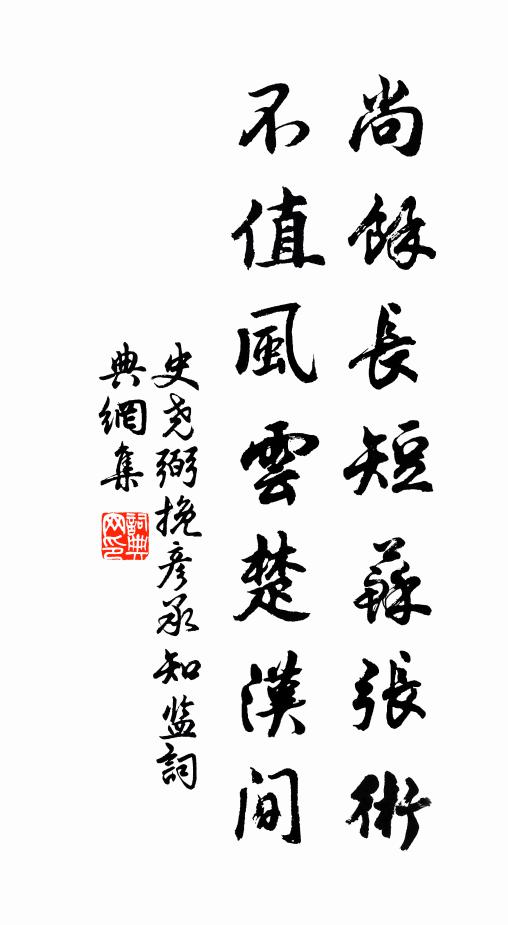 尚餘長短蘇張術
不值風雲楚漢間
史尧弼挽彥承知监詞
典網集
詞典網印